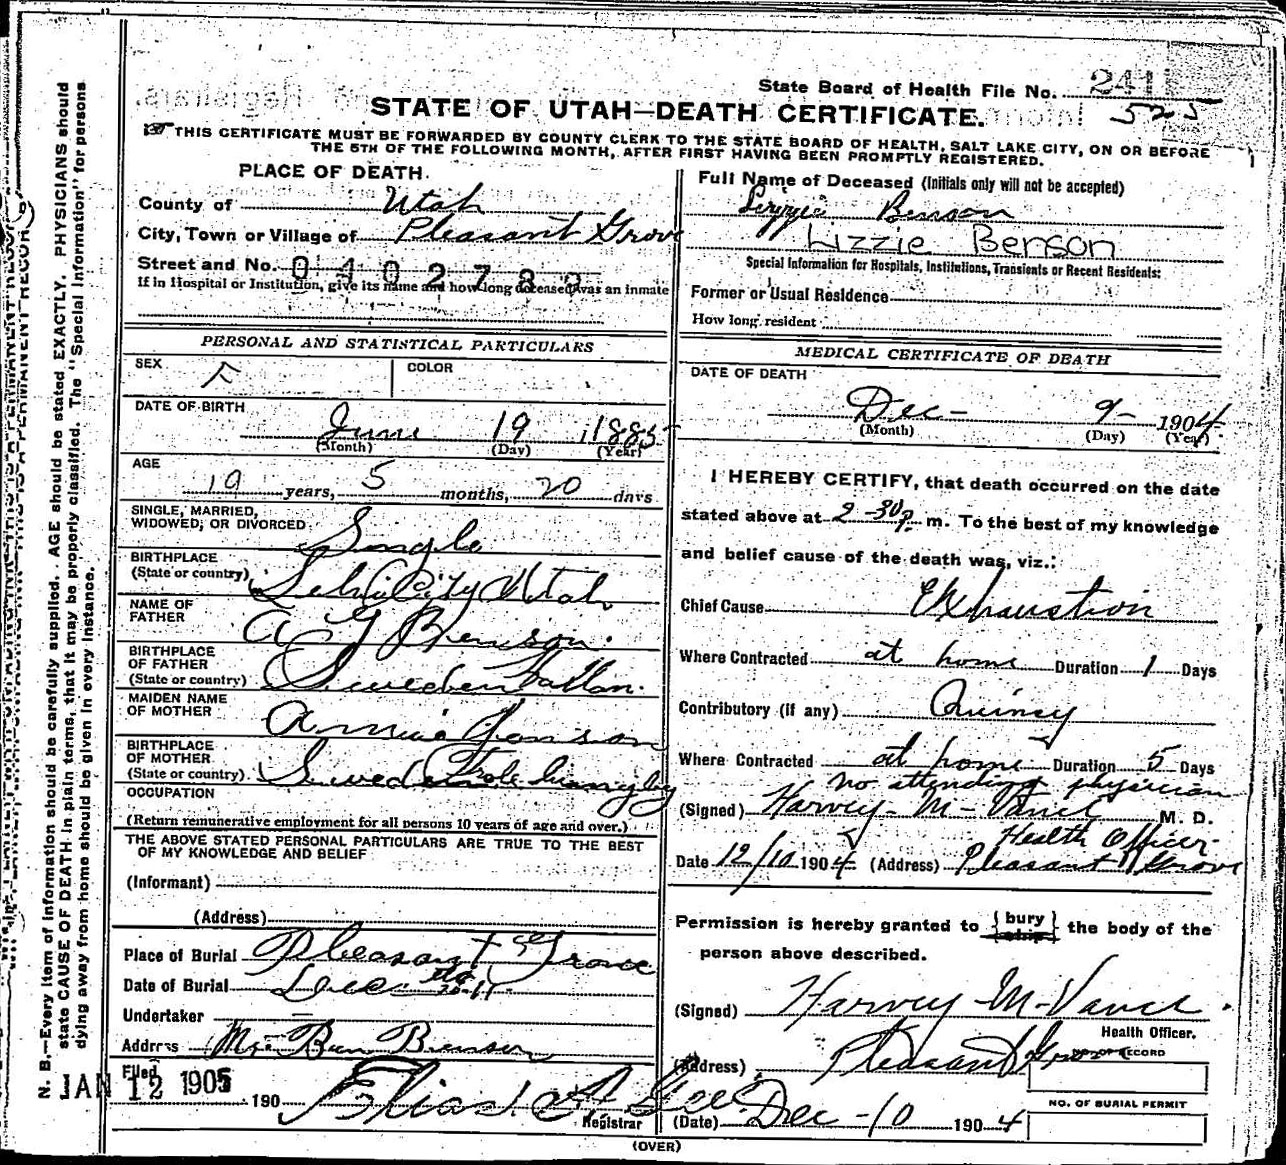 State Board of Health File No. 241
525
STATE OF UTAH—DEATH CERTIFICATE.
THIS CERTIFICATE MUST BE FORWARDED BY COUNTY CLERK TO THE STATE BOARD OF HEALTH, SALT LAKE CITY, ON OR BEFORE
THE 5TH OF THE FOLLOWING MONTH, AFTER FIRST HAVING BEEN PROMPTLY REGISTERED.
PLACE OF DEATH.
County of Utah
City, Town or Village of Pleasant Grove
Street and No.
If in Hospital or Institution, give its name and how long deceased was an inmate
PERSONAL AND STATISTICAL PARTICULARS
SEX F
COLOR
DATE OF BIRTH
June 19 1885
(Month) (Day) (Year)
AGE
19 years, 5 months, 20 days
SINGLE, MARRIED,
WIDOWED, OR DIVORCED Single
BIRTHPLACE
(State or country) Lehi City Utah
NAME OF
FATHER A G Benson.
BIRTHPLACE
OF FATHER
(State or country) Sweden
MAIDEN NAME
OF MOTHER Annie
BIRTHPLACE
OF MOTHER
(State or country). Sweden
OCCUPATION
(Return remunerative employment for all persons 10 years of age and over.)
THE ABOVE STATED PERSONAL PARTICULARS ARE TRUE TO THE BEST
OF MY KNOWLEDGE AND BELIEF
(Informant)
(Address)
Place of Burial Pleasant Grove
Date of Burial Dec
Undertaker
Address Benson
Filed
JAN 12 1905
190 Elias A Gee
Registrar
Full Name of Deceased (Initials only will not be accepted)
Lizzie Benson
Lizzie Benson
Special Information for Hospitals, Institutions, Transients or Recent Residents:
Former or Usual Residence
How long resident
MEDICAL CERTIFICATE OF DEATH
DATE OF DEATH
Dec- 9- 1904.
(Month) (Day) (Year)
I HEREBY CERTIFY, that death occurred on the date
stated above at 2-30 p. m. To the best of my knowledge
and belief cause of the death was, viz.:
Chief Cause Exhaustion
Where Contracted at home Duration 1 Days
Contributory (if any) Quinsy
Where Contracted at home Duration 5 Days
No attending physician
(Signed) Harvey-M-Vance M. D.
Health Officer
Date 12/10 1904 (Address) Pleasant Grove
Permission is hereby granted to {bury ship} the body of the
person above described.
(Signed) Harvey-M-Vance.
Health Officer.
(Address) Pleasant Grove
NO. OF RECORD
NO. OF BURIAL PERMIT
(Date) Dec-10 1904
(OVER)
N. B.—Every item of information should be carefully supplied. AGE should be stated EXACTLY. PHYSICIANS should
state CAUSE OF DEATH in plain terms, that it may be properly classified. The "Special Information" for persons
dying away from home should be given in every instance.